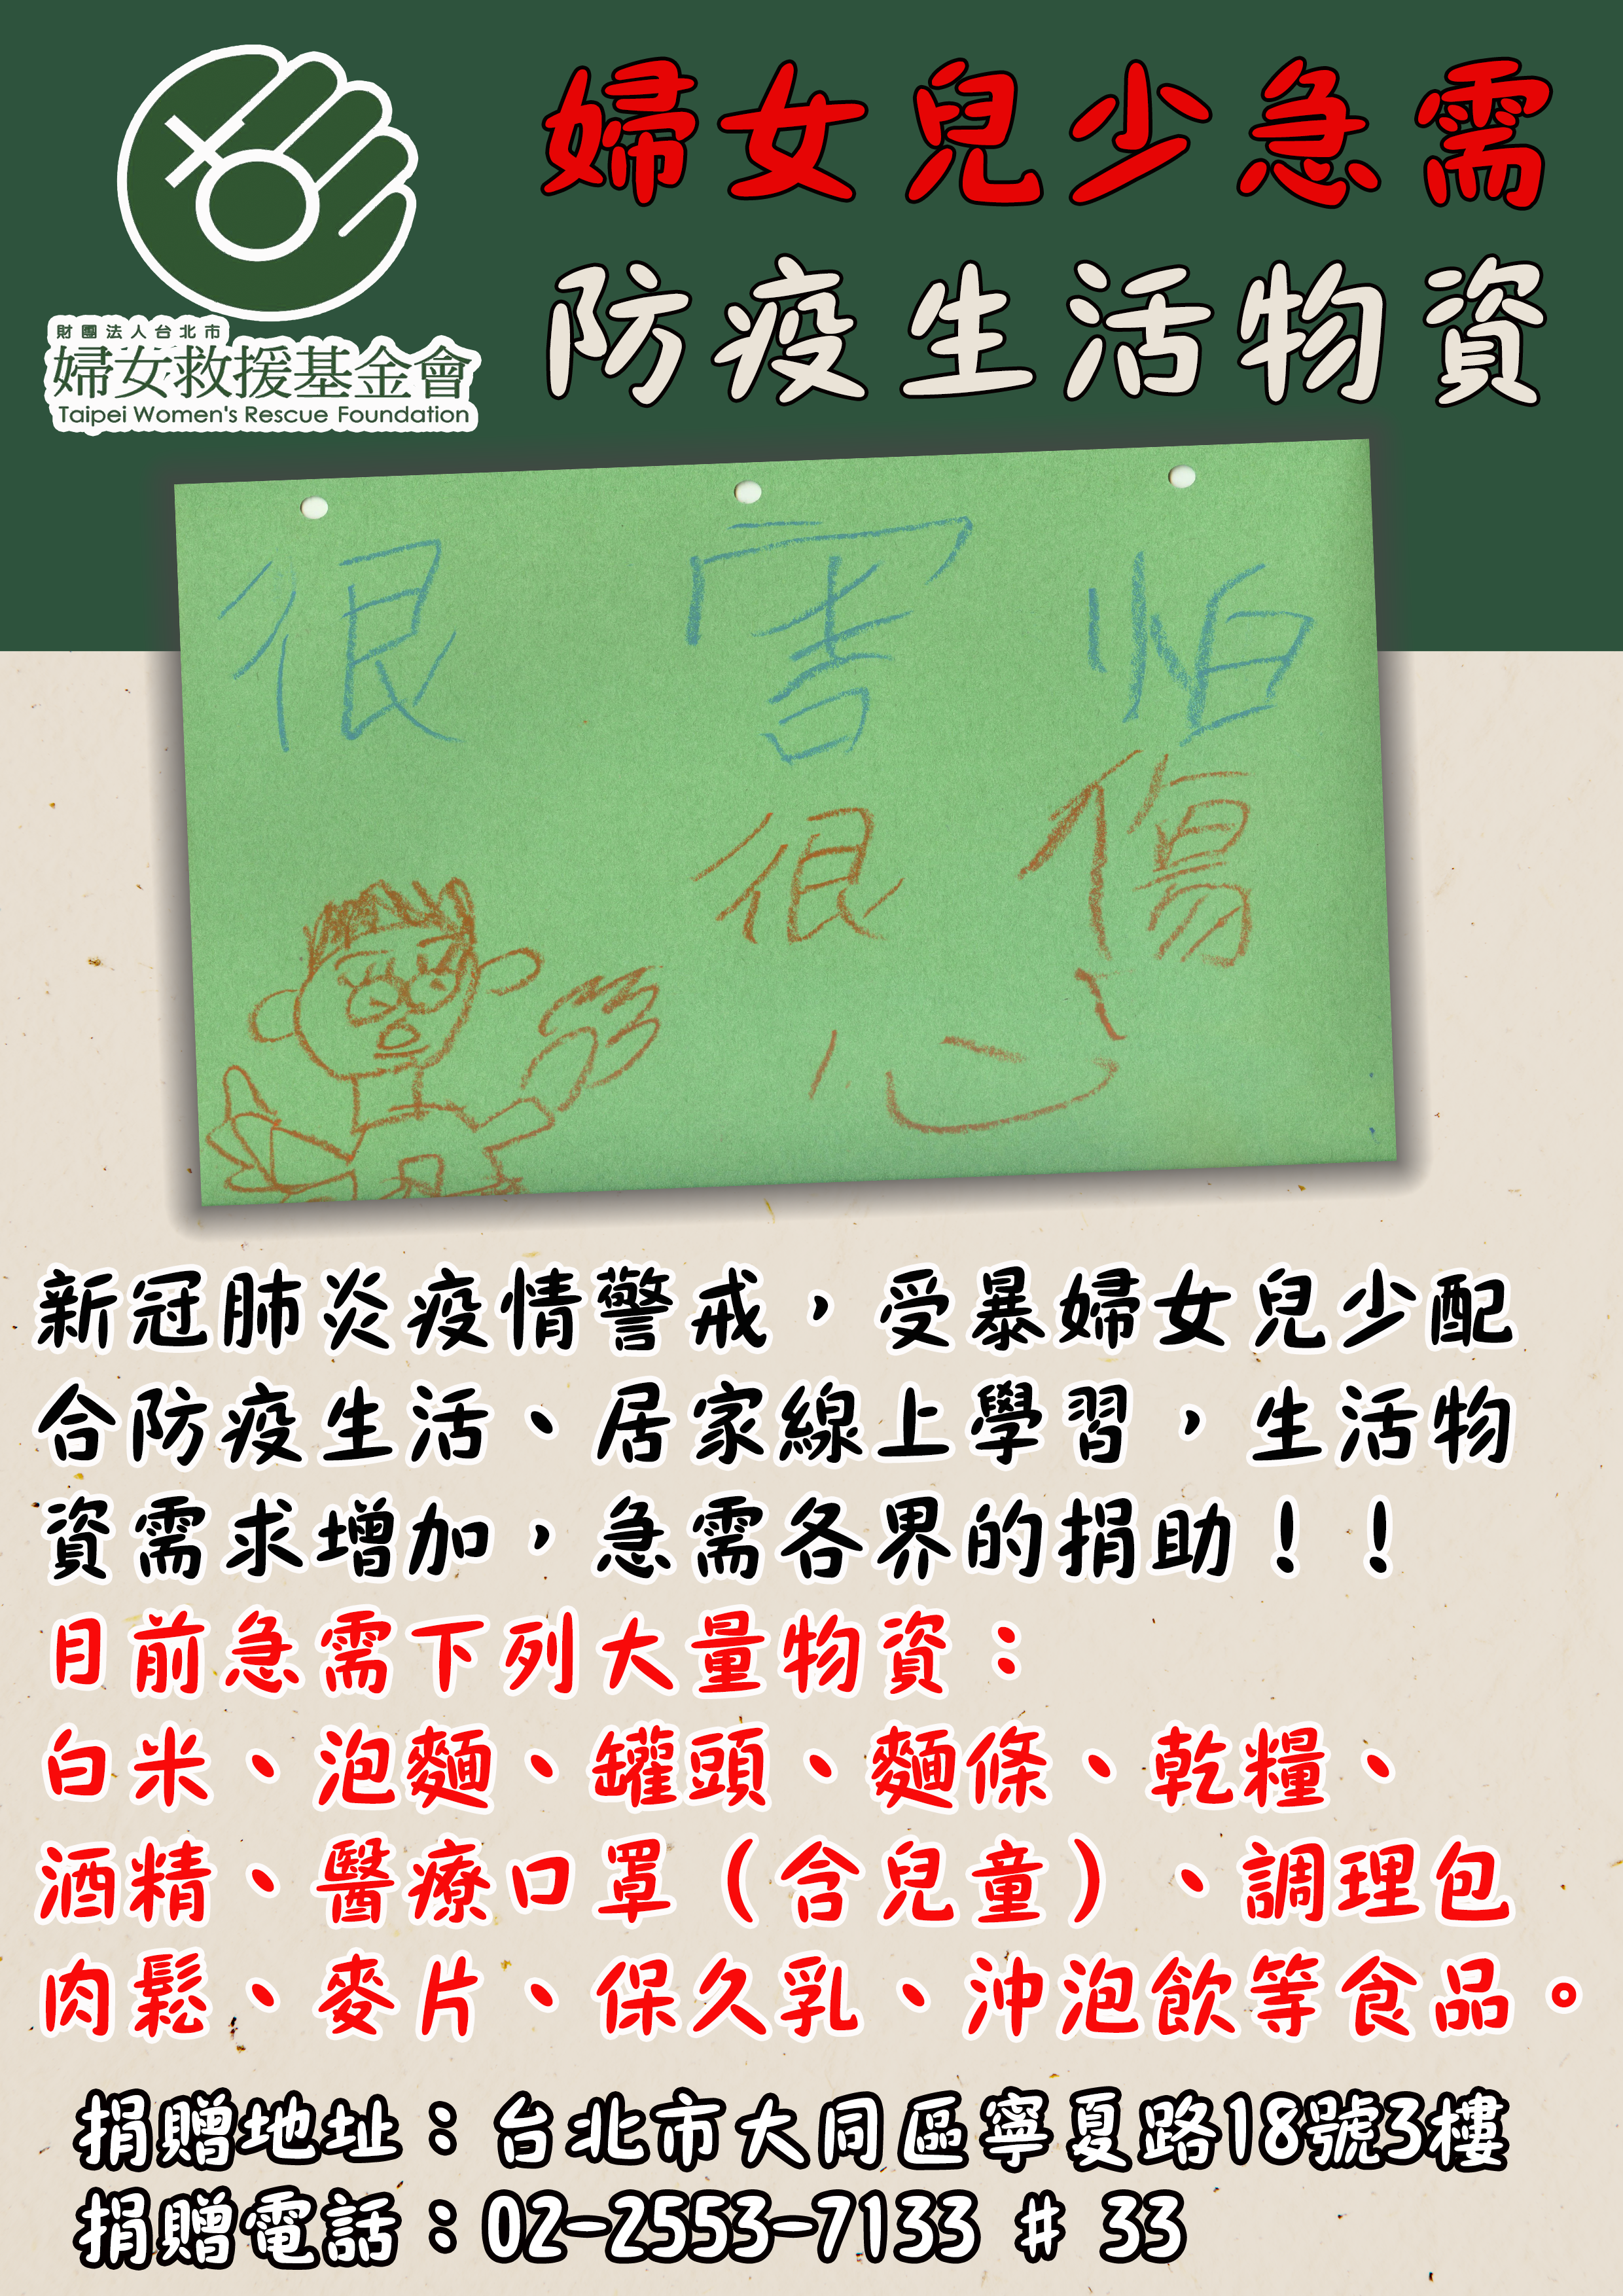 財團法人台北市
婦女救援基金會
Taipei Women's Rescue Foundation
婦女兒少急需
防疫生活物資
很害怕
很傷
心
新冠肺炎疫情警戒，受暴婦女兒少配
合防疫生活、居家線上學習，生活物
資需求增加，急需各界的捐助！！
目前急需下列大量物資：
白米、泡麵、罐頭、麵條、乾糧、
酒精、醫療口罩（含兒童）、調理包
肉鬆、麥片、保久乳、沖泡飲等食品。
捐贈地址：台北市大同區寧夏路18號3樓
捐贈電話：02-2553-7133 # 33